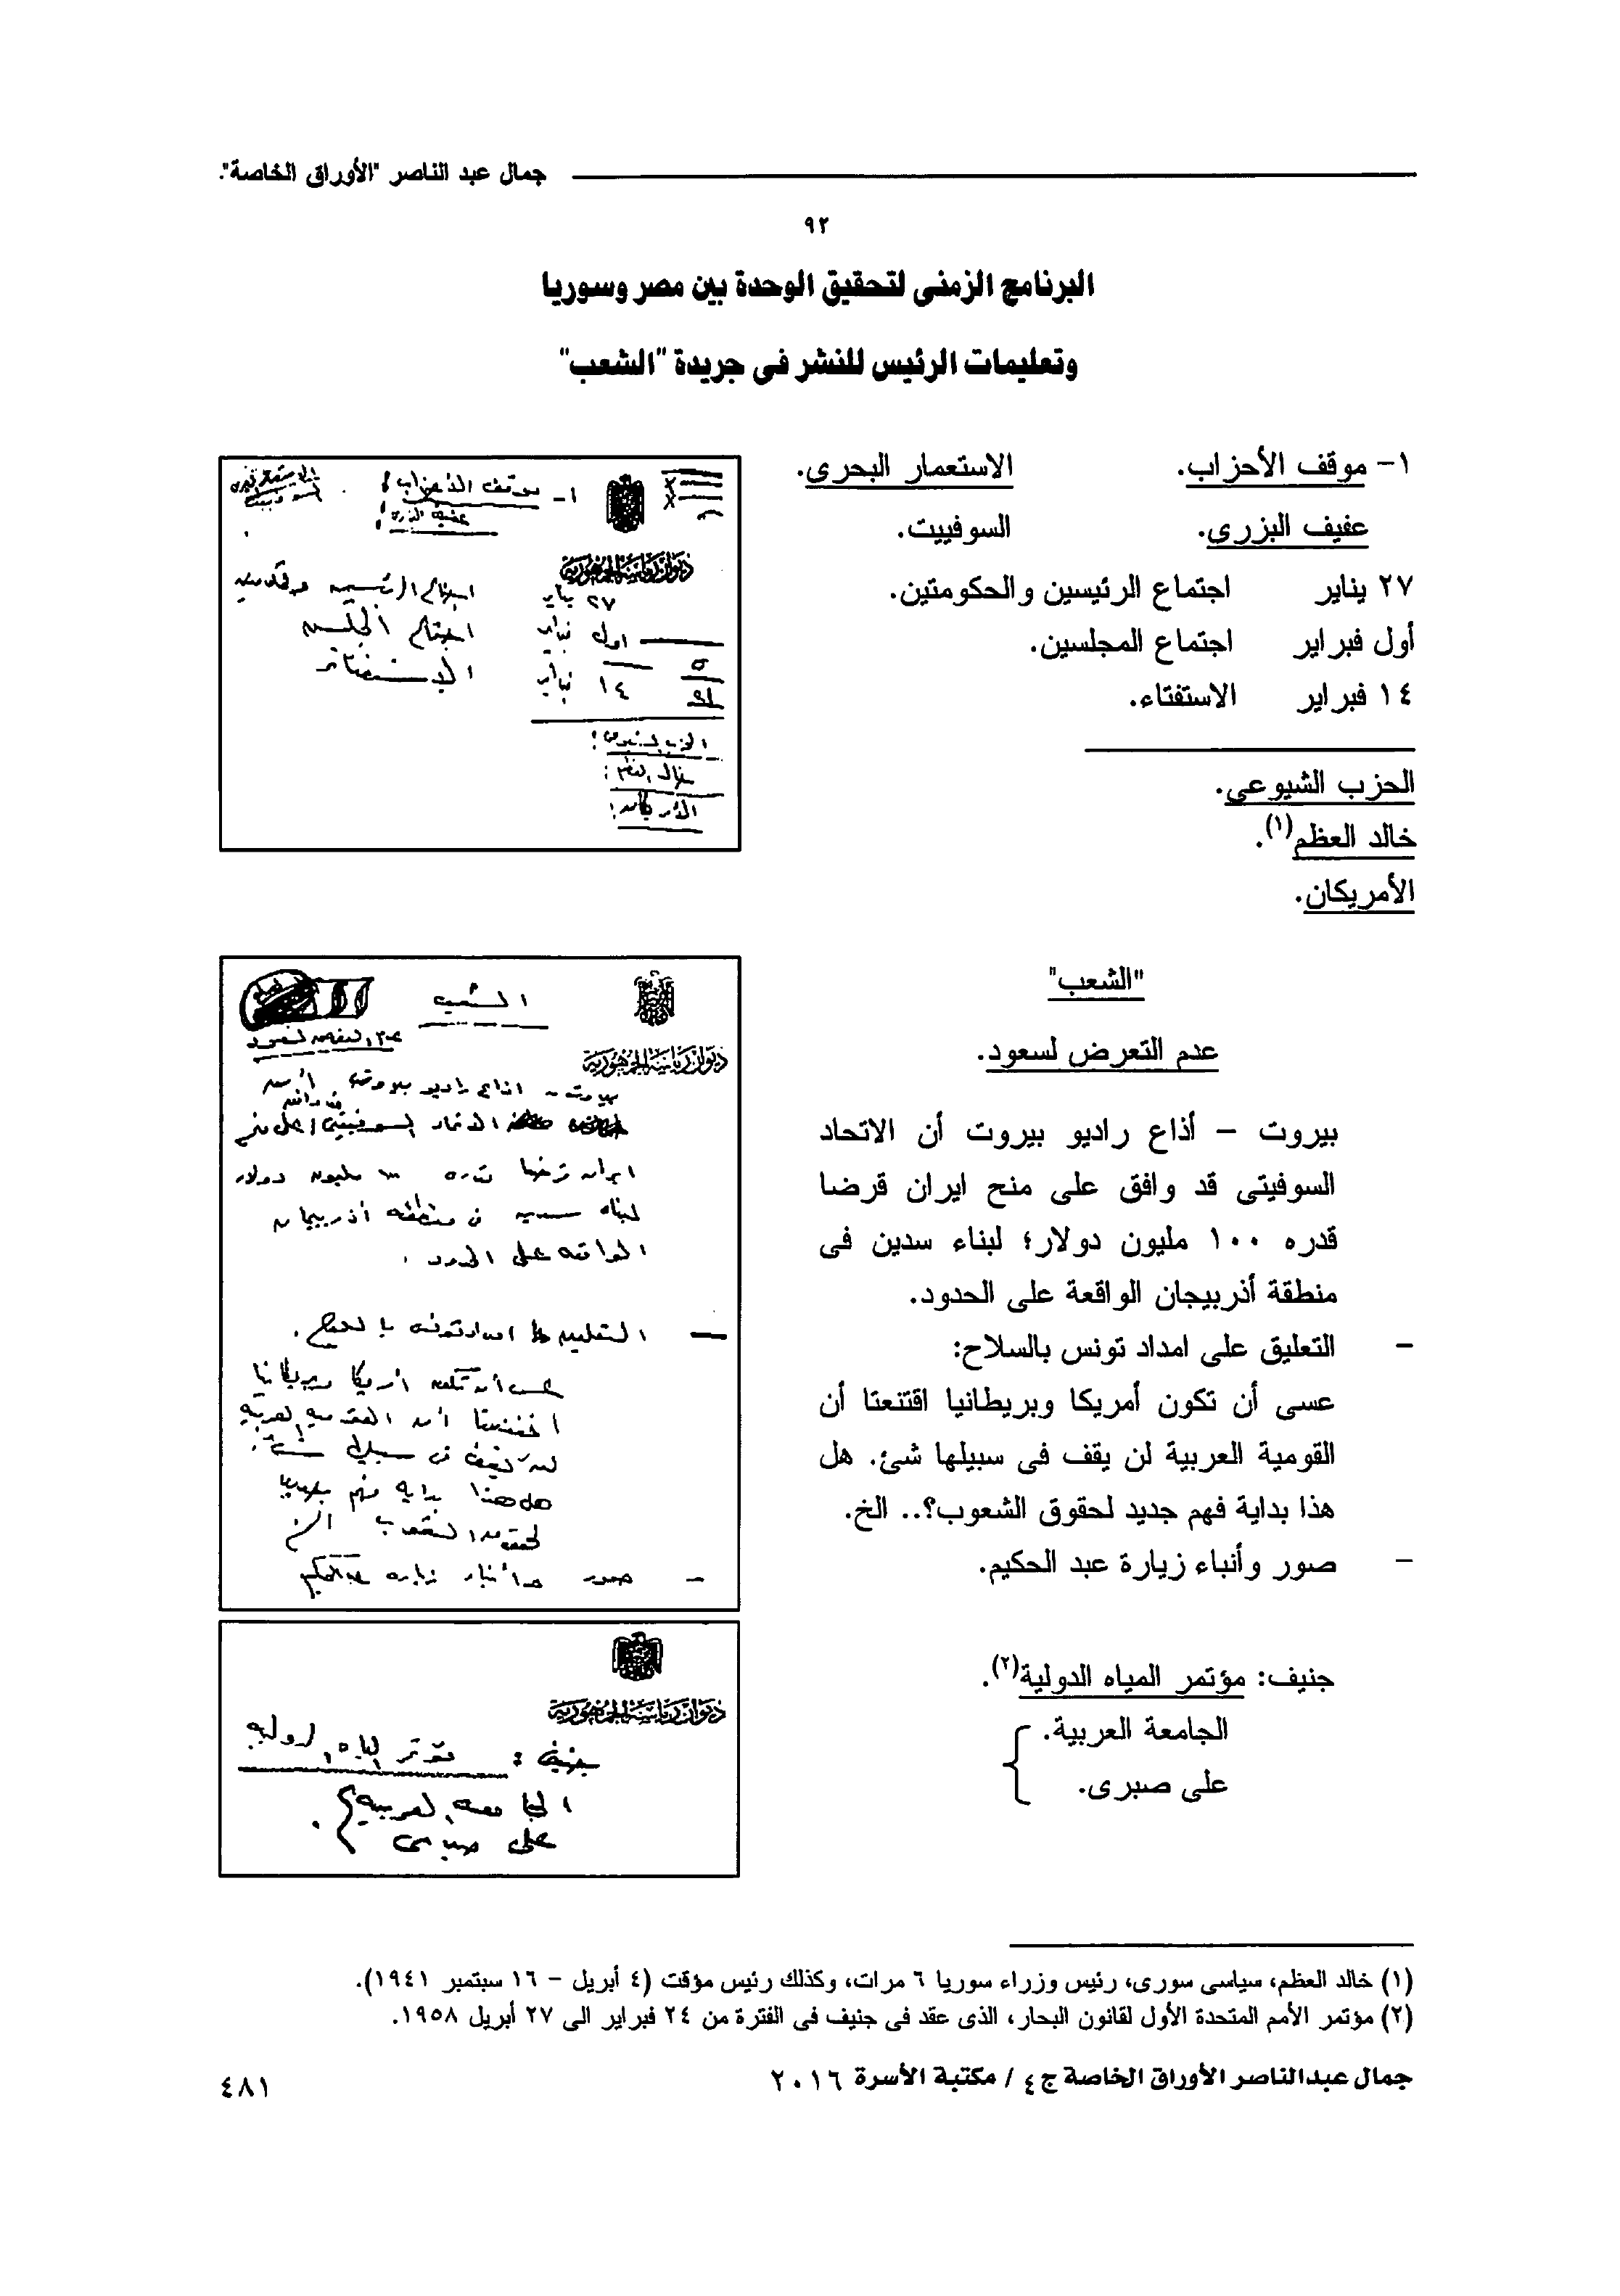 جمال عبد الناصر "الأوراق الخاصة".
٩٢
البرنامج الزمنى لتحقيق الوحدة بين مصر وسوريا
وتعليمات الرئيس للنشر فى جريدة "الشعب"
١- موقف الأحزاب. الاستعمار البحرى.
عفيف البزرى. السوفييت.
٢٧ يناير اجتماع الرئيسين والحكومتين.
أول فبراير اجتماع المجلسين.
١٤ فبراير الاستفتاء.
الحزب الشيوعى.
خالد العظم(١).
الأمريكان.
١- موقف الأحزاب
عفيف البزرى
ديوان رياسة الجمهورية
٢٧ يناير اجتماع الرئيسين والحكومتين
اول فبراير اجتماع المجلسين
١٤ فبراير الاستفتاء
الحزب الشيوعى
خالد العظم
الأمريكان
"الشعب"
عدم التعرض لسعود.
بيروت - أذاع راديو بيروت أن الاتحاد
السوفيتى قد وافق على منح ايران قرضا
قدره ١٠٠ مليون دولار؛ لبناء سدين فى
منطقة أذربيجان الواقعة على الحدود.
- التعليق على امداد تونس بالسلاح:
عسى أن تكون أمريكا وبريطانيا اقتنعتا أن
القومية العربية لن يقف فى سبيلها شئ. هل
هذا بداية فهم جديد لحقوق الشعوب؟.. الخ.
- صور وأنباء زيارة عبد الحكيم.
الشعب
عدم التعرض لسعود
ديوان رياسة الجمهورية
بيروت - اذاع راديو بيروت أن
الاتحاد السوفيتى على منح
ايران قرضا قدره ١٠٠ مليون دولار
لبناء سدين فى منطقة أذربيجان
الواقعة على الحدود.
- التعليق على امداد تونس بالسلاح.
عسى أن تكون أمريكا وبريطانيا
اقتنعتا أن القومية العربية
لن يقف فى سبيلها شئ.
هل هذا بداية فهم جديد
لحقوق الشعوب الخ
- صور وأنباء زيارة عبد الحكيم
جنيف: مؤتمر المياه الدولية(٢).
الجامعة العربية.
على صبرى.
ديوان رياسة الجمهورية
جنيف: مؤتمر المياه الدولية
الجامعة العربية
على صبرى
(١) خالد العظم، سياسى سورى، رئيس وزراء سوريا ٦ مرات، وكذلك رئيس مؤقت (٤ أبريل - ١٦ سبتمبر ١٩٤١).
(٢) مؤتمر الأمم المتحدة الأول لقانون البحار، الذى عقد فى جنيف فى الفترة من ٢٤ فبراير الى ٢٧ أبريل ١٩٥٨.
جمال عبدالناصر الأوراق الخاصة ج٤ / مكتبة الأسرة ٢٠١٦
٤٨١